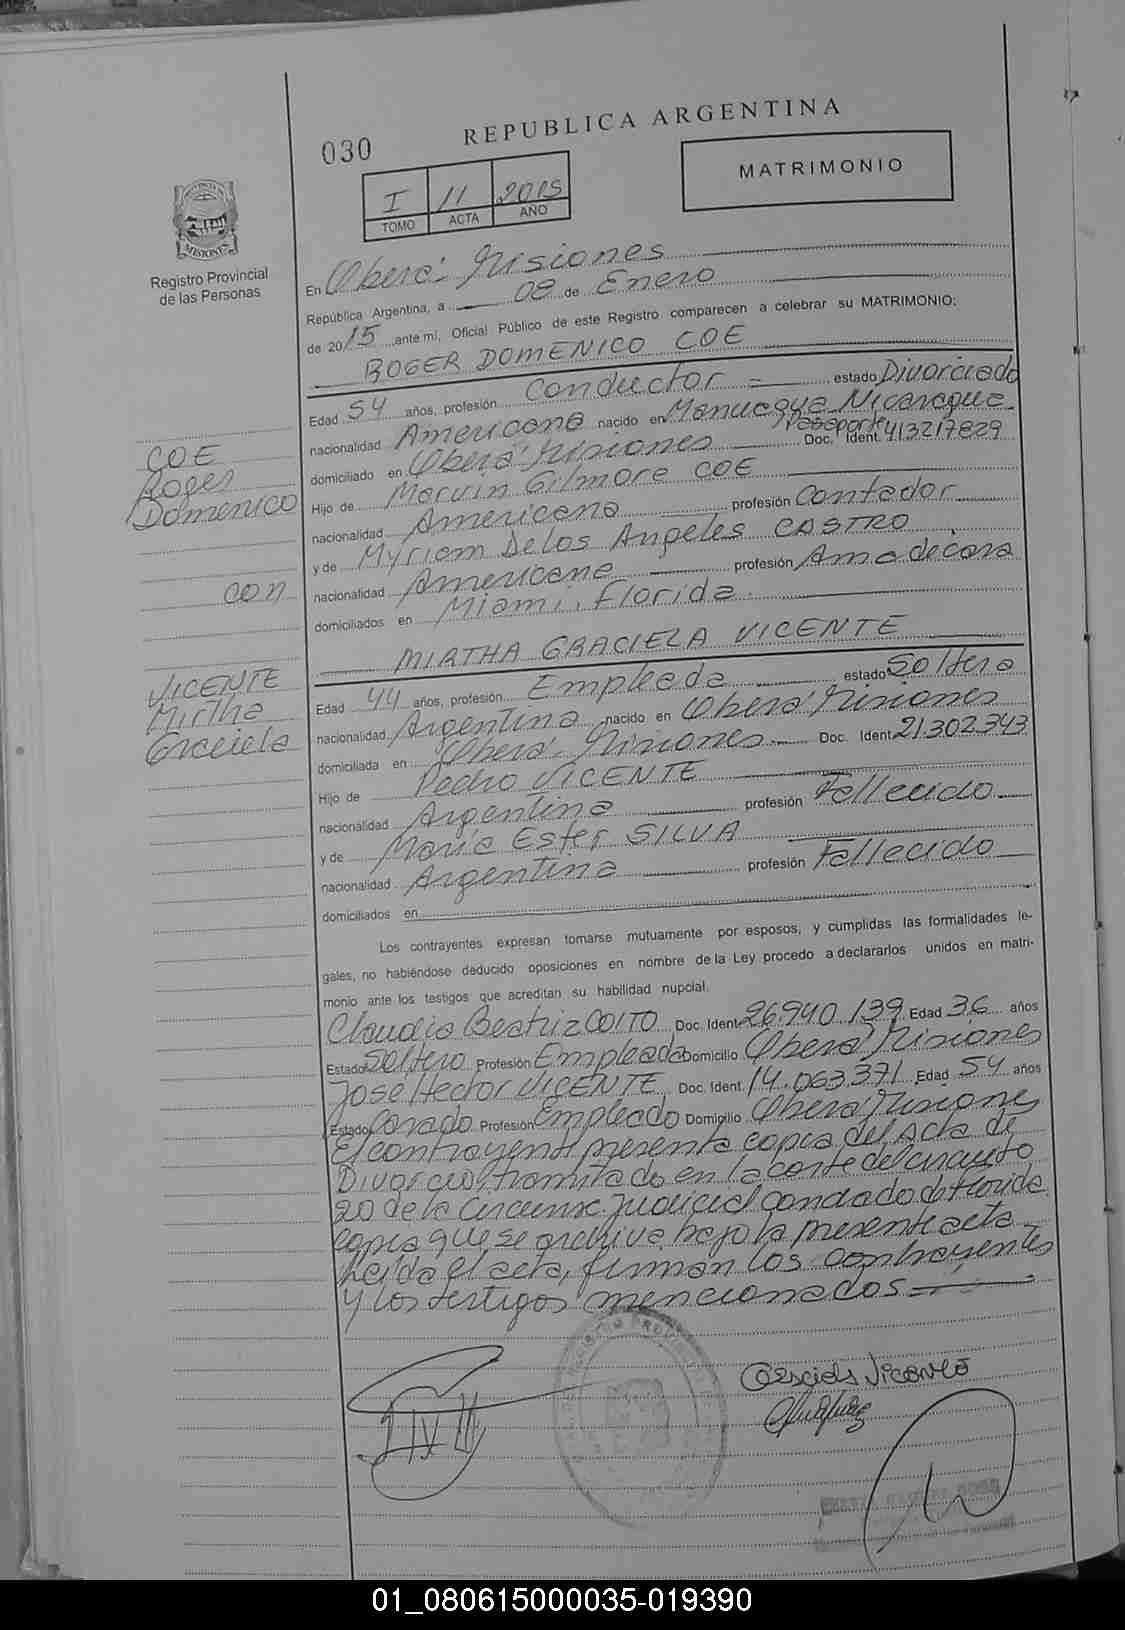 REPUBLICA ARGENTINA
030
MATRIMONIO
I 11 2015
TOMO ACTA AÑO
MISIONES
Registro Provincial
de las Personas
En Oberá - Misiones
República Argentina, a 08 de Enero
de 2015 ante mí, Oficial Público de este Registro comparecen a celebrar su MATRIMONIO:
ROGER DOMENICO COE
Edad 54 años, profesión Conductor = estado Divorciado
nacionalidad Americana nacido en Managua Nicaragua
Pasaporte
domiciliado en Oberá Misiones Doc. Ident. 413217829
Hijo de Marvin Gilmore COE
nacionalidad Americana profesión Contador
y de Myriam De los Angeles CASTRO
nacionalidad Americana profesión Ama de casa
domiciliados en Miami, Florida
COE
Roger
Domenico
con
VICENTE
Mirtha
Graciela
MIRTHA GRACIELA VICENTE
Edad 44 años, profesión Empleada estado Soltera
nacionalidad Argentina nacido en Oberá Misiones
domiciliada en Oberá - Misiones Doc. Ident 21.302.343
Hijo de Pedro VICENTE
nacionalidad Argentina profesión Fallecido
y de María Ester SILVA
nacionalidad Argentina profesión Fallecido
domiciliados en
Los contrayentes expresan tomarse mutuamente por esposos, y cumplidas las formalidades le-
gales, no habiéndose deducido oposiciones en nombre de la Ley procedo a declararlos unidos en matri-
monio ante los testigos que acreditan su habilidad nupcial.
Claudia Beatriz COITO Doc. Ident 26.940.139 Edad 36 años
Estado Soltero Profesión Empleada Domicilio Oberá Misiones
José Hector VICENTE Doc. Ident. 14.063.371 Edad 54 años
Estado Casado Profesión Empleado Domicilio Oberá Misiones
El contrayente presenta copia del Acta de
Divorcio, tramitado en la corte del circuito
20 de la Judicial condado de Florida
copia que se archiva bajo la presente acta
Leida el acta, firman los contrayentes
y los testigos mencionados
Graciela Vicente
01_080615000035-019390